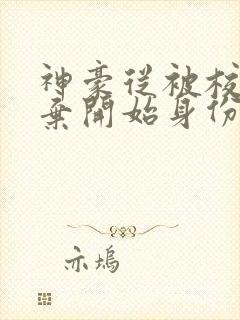 神豪從被校
棄開始身份
亦塢